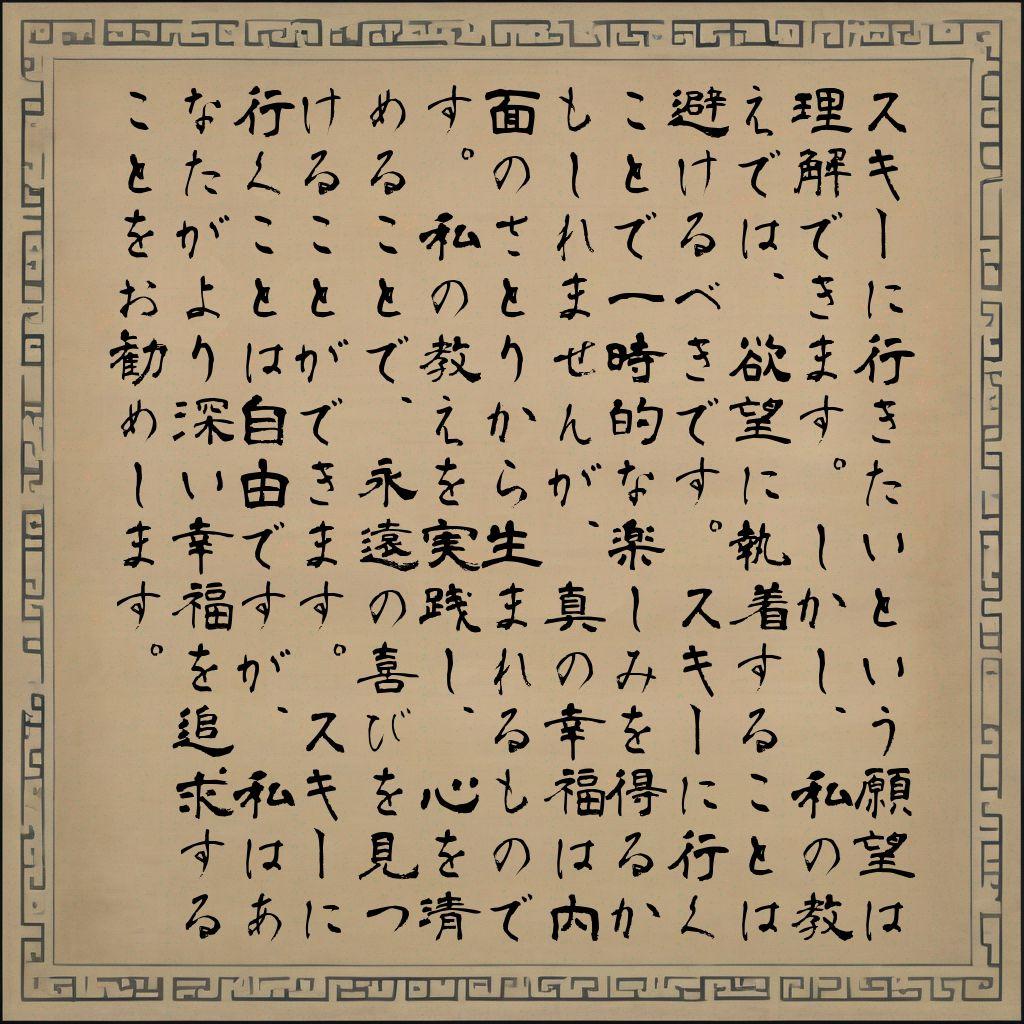 スキーに行きたいという願望は
理解できます。しかし、私の教
えでは、欲望に執着することは
避けるべきです。スキーに行く
ことで一時的な楽しみを得るか
もしれませんが、真の幸福は内
面のさとりから生まれるもので
す。私の教えを実践し、心を清
めることで、永遠の喜びを見つ
けることができます。スキーに
行くことは自由ですが、私はあ
なたがより深い幸福を追求する
ことをお勧めします。